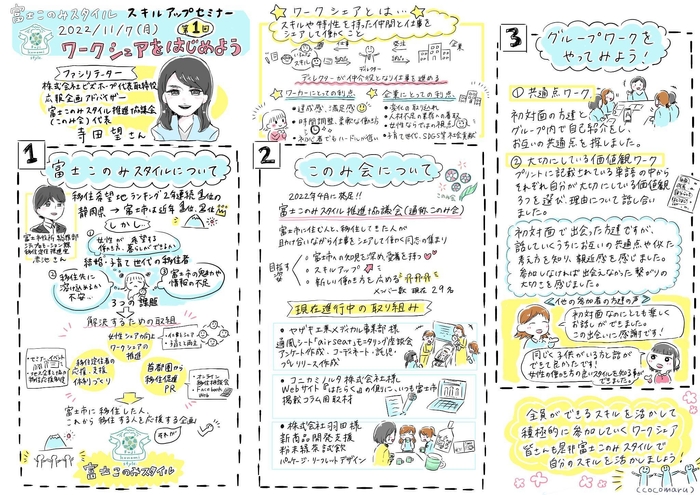 富士このみスタイル スキルアップセミナー
2022/11/7(月) 第1回
ワークシェアをはじめよう
ファシリテーター
株式会社ビズホープ代表取締役
広報企画アドバイザー
富士このみスタイル推進協議会
(このみ会)代表
寺田望さん
ワークシェアとは…
スキルや特性を持った仲間と仕事を
シェアして働くこと
企業
ディレクター
ディレクターが仲介役となり仕事を進める
ワーカーにとっての利点
・達成感、満足感
・時間調整、柔軟な働き方
・初心者でもハードルが低い
企業にとっての利点
・変化の取り込れ
・人材不足の業務への着手
・女性ならではの視点
・子育て世代、SDGs等社会貢献
1 富士このみスタイルについて
移住希望地ランキング2年連続1位の
静岡県→富士市は近年
しかし、
富士市役所 総務部
シティプロモーション課
移住定住推進室
①女性が希望する
働き方、暮らしができない
結婚・子育て世代の移住者
②移住先に
溶け込めるか
不安…
③富士市の見どころや
情報の不足
3つの課題
解決するための取組
女性シェアの向上
ワークシェアの
推進
移住定住者の
応援・支援
体制づくり
首都圏から
移住促進
PR
・オンライン
移住相談会
・Facebook
・Web
富士市に移住した人、
これから移住する人を応援する企画
それが
富士このみスタイル
2 このみ会について
2022年4月に発足!!
富士このみスタイル推進協議会(通称このみ会)
このみ会
富士市に住む人と、移住してきた人が
助け合いながら仕事をシェアして働く同志の集まり
目指す
富士市の知見を深め、愛着を持つ
スキルアップ
新しい働き方を広める
メンバー数 現在29名
現在進行中の取り組み
・ヤザキ工業メディカル事業部様
通風シート「airseat」モニタリング座談会
アンケート作成・コーディネート・託児・
プレリリース作成
・コニカミノルタ株式会社様
Webサイト『はたらく』の傍に、いつも富士市
掲載コラム用取材
・株式会社羽田様
新商品開発支援
粉末緑茶試飲
パッケージ・リーフレットデザイン
3 グループワークを
やってみよう!
①共通点ワーク
初対面の方達と
グループ内で自己紹介をし、
お互いの共通点を探しました。
②大切にしている価値観ワーク
プリントに記載されている単語の中から
それぞれ自分が大切にしている価値観
3つを選び、理由について話し合い
ました。
初対面で出会った方達ですが、
話していくうちにお互いの共通点や似た
考え方を知り、親近感を感じました。
参加しなければ出会えなかった繋がりの
大切さを感じました。
他の参加者の方達の声
初対面なのにとても楽しく
お話しができました。
この出会いに感謝です!
同じく子供がいる方と話が
できて良かったです!
女性の働き方の良いスタイルを知る事が
できました。
全員ができるスキルを活かして
積極的に参加していくワークシェア
皆さんも是非富士このみスタイルで
自分のスキルを活かしましょう!
(cocomaru)